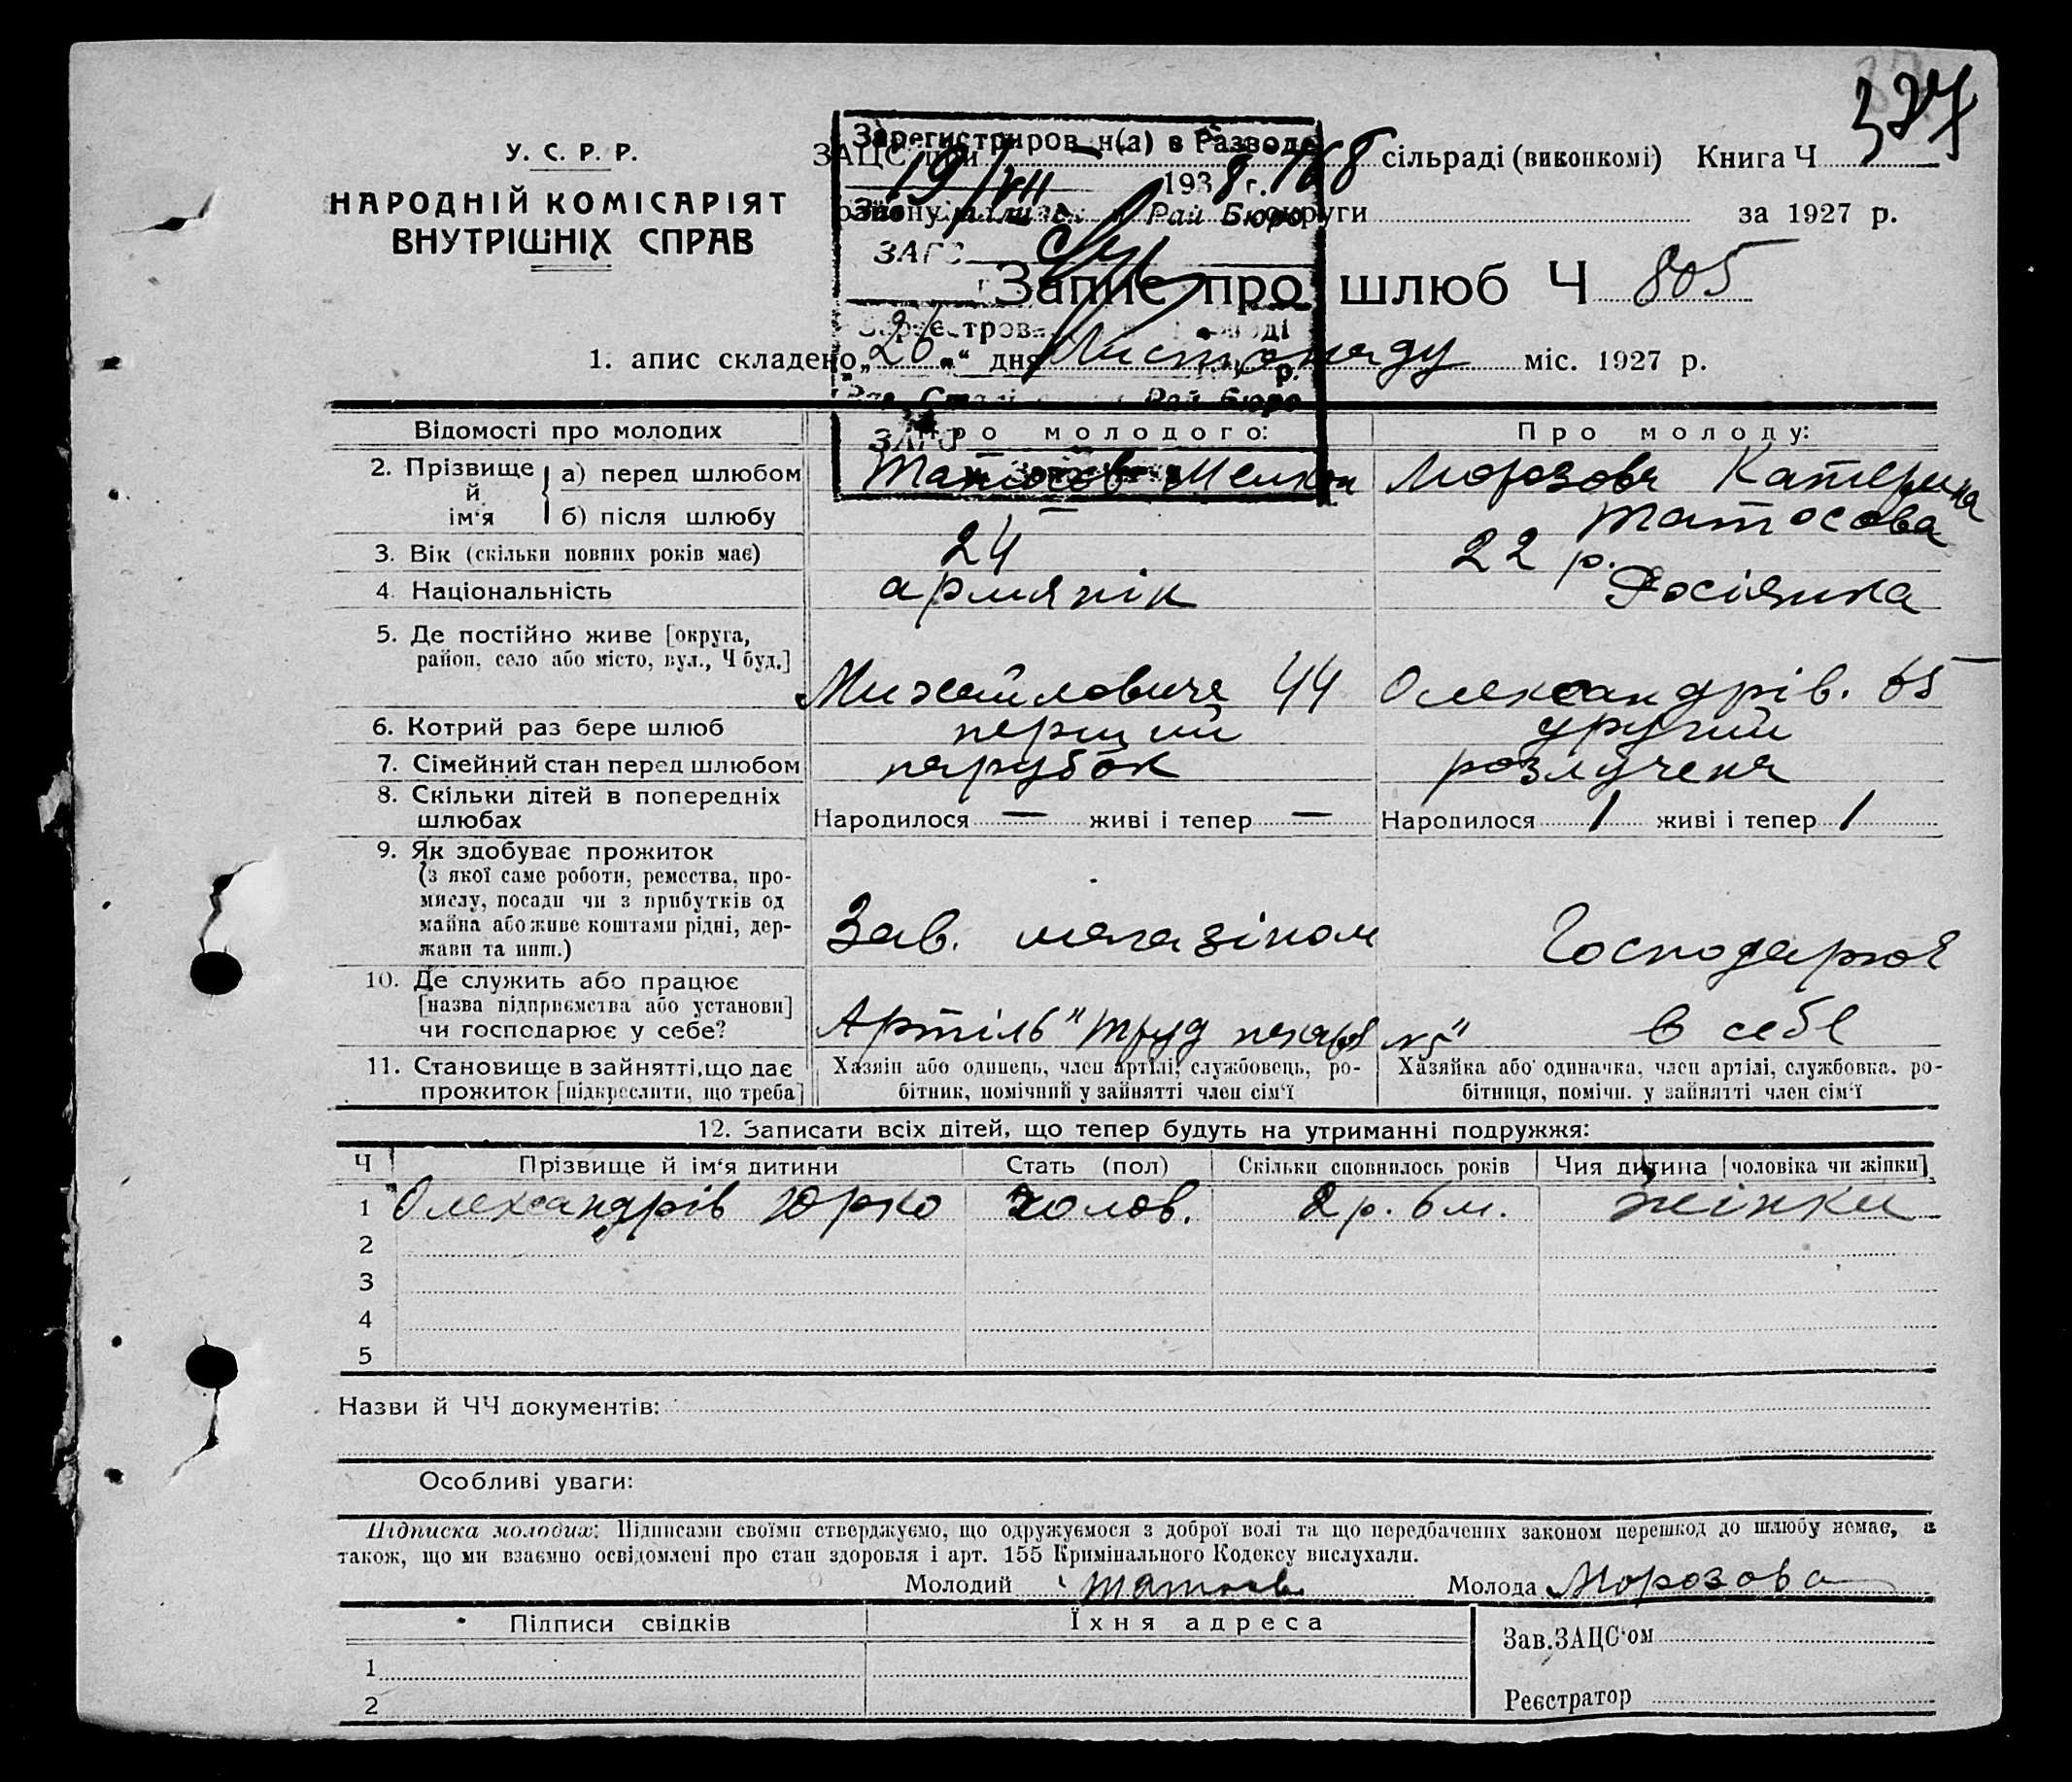 327
У. С. Р. Р.
НАРОДНІЙ КОМІСАРІЯТ
ВНУТРІШНІХ СПРАВ
Зарегистриров н(а) в Разводе
19/VII 1938 г. 768
Рай Бюро
ЗАГС
ЗАЦС при сільраді (виконкомі) Книга Ч
району округи за 1927 р.
Запис про шлюб Ч 805
1. апис складено „26“ дня Листопаду міс. 1927 р.
Рай Бюро
ЗАГС
Відомості про молодих
Про молодого:
Про молоду:
2. Прізвище й ім‘я
а) перед шлюбом
Татосов Мелкон
Морозова Катерина
б) після шлюбу
—
Татосова
3. Вік (скільки повних років має)
24
22 р.
4. Національність
армянік
Росіянка
5. Де постійно живе [округа,
район, село або місто, вул., Ч буд.]
Михайловича 44
Олександрів. 65
6. Котрий раз бере шлюб
перший
другий
7. Сімейний стан перед шлюбом
парубок
розлучена
8. Скільки дітей в попередніх
шлюбах
Народилося — живі і тепер —
Народилося 1 живі і тепер 1
9. Як здобуває прожиток
(з якої саме роботи, ремества, про-
мислу, посади чи з прибутків од
майна або живе коштами рідні, дер-
жави та инш.)
Зав. магазіном
Господарює
10. Де служить або працює
[назва підприємства або установи]
чи господарює у себе?
Артіль "Труд пекаря №5"
в себе
11. Становище в зайнятті, що дає
прожиток [підкреслити, що треба]
Хазяїн або одинець, член артілі, службовець, ро-
бітник, помічний у зайнятті член сім‘ї
Хазяйка або одиначка, член артілі, службовка, ро-
бітниця, помічн. у зайнятті член сім‘ї
12. Записати всіх дітей, що тепер будуть на утриманні подружжя:
Ч Прізвище й ім‘я дитини Стать (пол) Скільки сповнилось років Чия дитина [чоловіка чи жінки]
1 Олександрів Юрко чолов. 2 р. 6 м. жінки
2
3
4
5
Назви й ЧЧ документів:
Особливі уваги:
Підписка молодих: Підписами своїми стверджуємо, що одружуємося з доброї волі та що передбачених законом перешкод до шлюбу немає, а
також, що ми взаємно освідомлені про стан здоровля і арт. 155 Кримінального Кодексу вислухали.
Молодий Татосов Молода Морозова
Підписи свідків Їхня адреса
Зав. ЗАЦС‘ом
1
2
Реєстратор